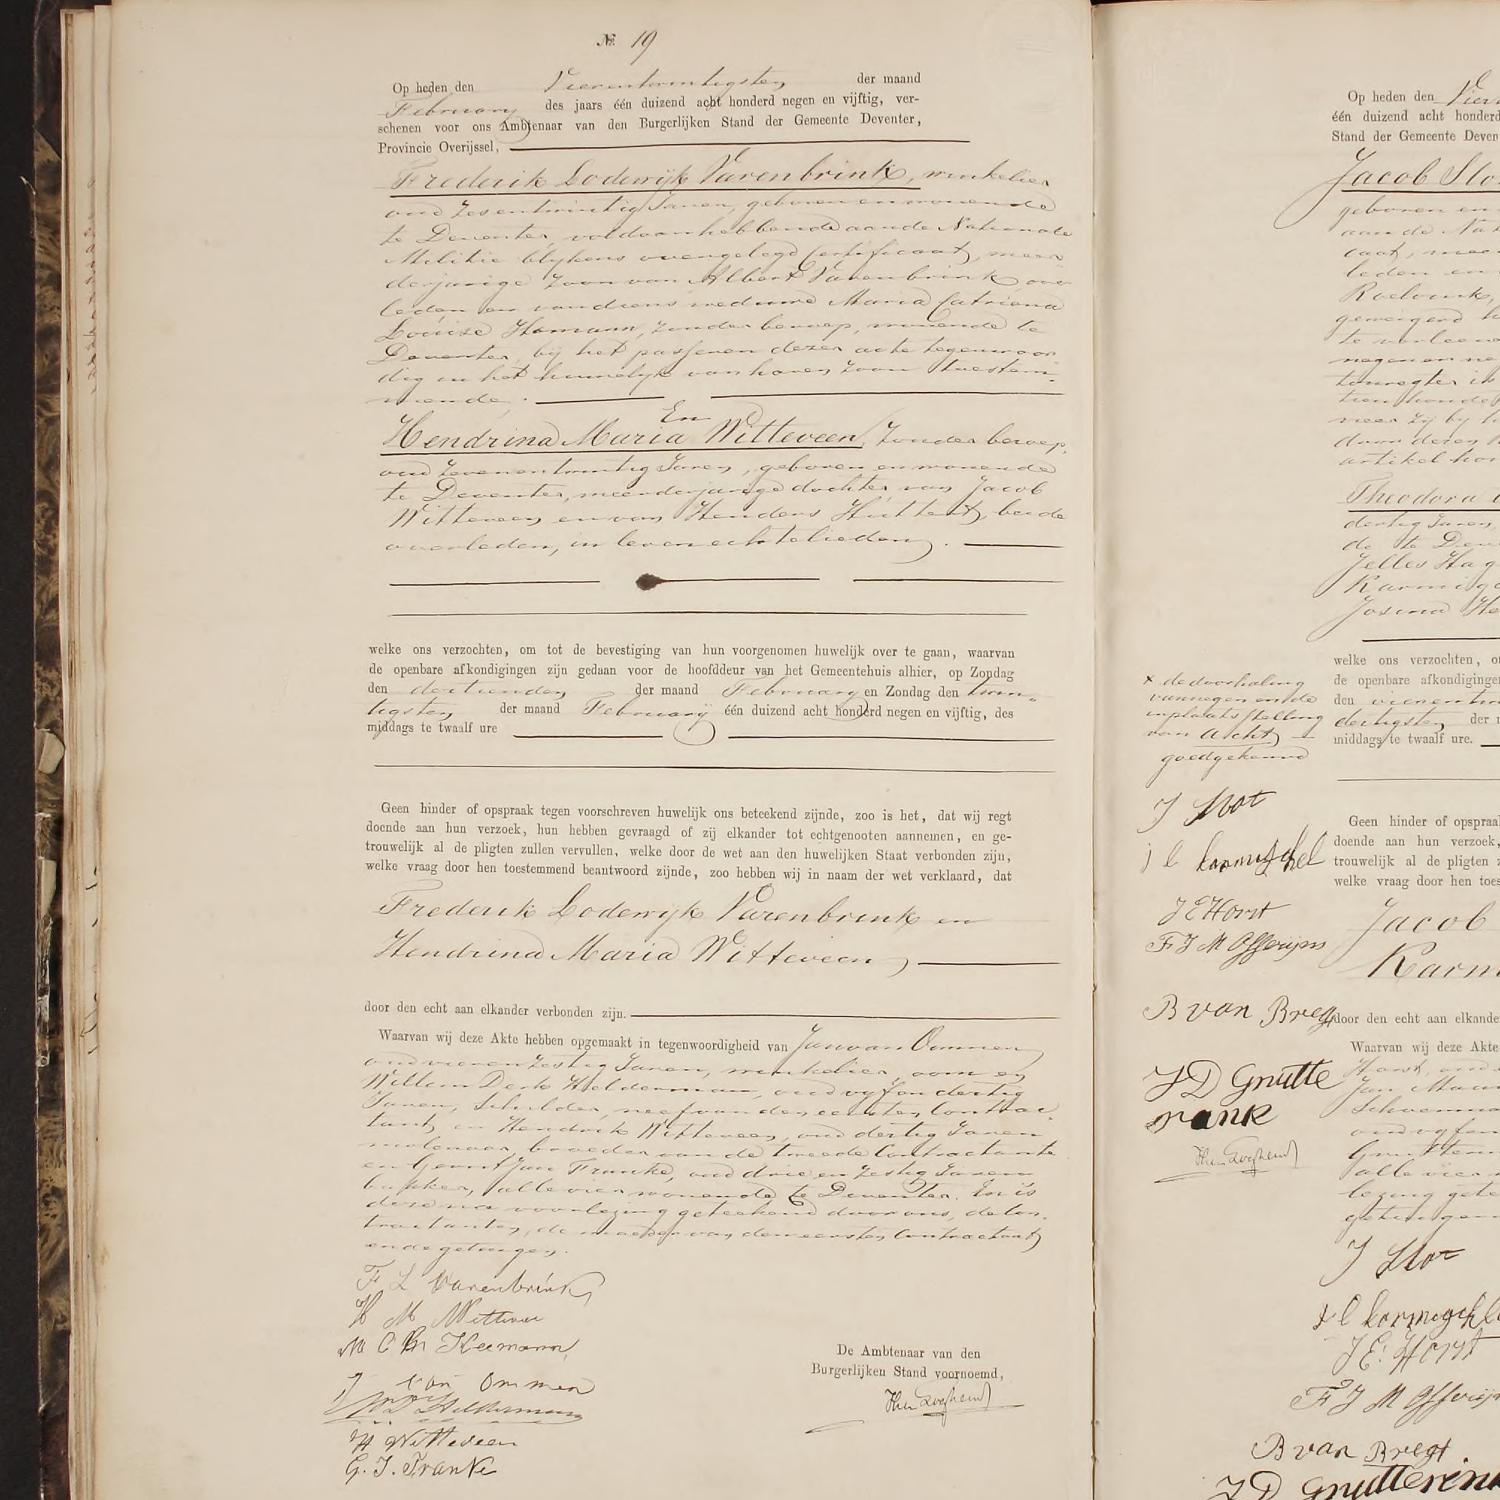 № 19
Op heden den Vierentwintigsten der maand
February des jaars één duizend acht honderd negen en vijftig, ver-
schenen voor ons Ambtenaar van den Burgerlijken Stand der Gemeente Deventer,
Provincie Overijssel,
Frederik Lodewijk Varenbrink, winkelier
oud zesentwintig Jaren, geboren en wonende
te Deventer, voldaan hebbende aan de Nationale
Militie blijkens overgelegd Certificaat, meer
derjarige zoon van Albert Varenbrink, over
leden en van diens weduwe Maria Catriena
Louise Homann, zonder beroep, wonende te
Deventer, bij het passeren dezer acte tegenwoor
dig en het huwelijk van haren zoon toestem-
mende.
En
Hendrina Maria Witteveen, zonder beroep,
oud zevenentwintig Jaren, geboren en wonende
te Deventer, meerderjarige dochter van Jacob
Witteveen en van Henders Huttert, beide
overleden, in leven echtelieden.
welke ons verzochten, om tot de bevestiging van hun voorgenomen huwelijk over te gaan, waarvan
de openbare afkondigingen zijn gedaan voor de hoofddeur van het Gemeentehuis alhier, op Zondag
den dertienden der maand February en Zondag den twin-
tigsten der maand February één duizend acht honderd negen en vijftig, des
middags te twaalf ure
Geen hinder of opspraak tegen voorschreven huwelijk ons beteekend zijnde, zoo is het, dat wij regt
doende aan hun verzoek, hun hebben gevraagd of zij elkander tot echtgenooten aannemen, en ge-
trouwelijk al de pligten zullen vervullen, welke door de wet aan den huwelijken Staat verbonden zijn,
welke vraag door hen toestemmend beantwoord zijnde, zoo hebben wij in naam der wet verklaard, dat
Frederik Lodewijk Varenbrink en
Hendrina Maria Witteveen,
door den echt aan elkander verbonden zijn.
Waarvan wij deze Akte hebben opgemaakt in tegenwoordigheid van Jan van Ommen
oud vierenzestig Jaren, winkelier, oom en
Willem Derk Helderman, oud vijfendertig
Jaren, Schilder, neef van den eersten Contrac-
tant, en Hendrik Witteveen, oud dertig Jaren
molenaar, broeder van de tweede Contractante
en Gerrit Jan Franke, oud drie en zestig Jaren
bakker, alle vier wonende te Deventer. En is
deze na voorlezing geteekend door ons, de Con-
tractanten, de moeder van den eersten Contractant
en de getuigen.
F L Varenbrink
H M Witteveen
M C Heemann
J van Ommen
W D Helderman
H Witteveen
G. J. Franke
De Ambtenaar van den
Burgerlijken Stand voornoemd,
Op heden den Vier
één duizend acht honderd
Stand der Gemeente Deven
Jacob Slo
geboren en
aan de Nat
caat, meer
leden en
Roelvink,
geweigerd
te verleen
negen en ne
tonregter in
tien honde
meer zij bij
door deren
artikel hon
Theodora
dertig Jaren,
de te Deve
Jelles Hag
Karmigg
Josina He
welke ons verzochten, o
de openbare afkondigingen
den vierentwin
dertigsten der
middags te twaalf ure.
x de doorhaling
van negen en de
inplaatsstelling
van Acht
goedgekeurd
J Slot
J E Horst
F J M Offerijns
B van Bregt
J D Gnutte
rink
Geen hinder of opspraak
doende aan hun verzoek,
trouwelijk al de pligten
welke vraag door hen toes
Jacob
Karm
door den echt aan elkander
Waarvan wij deze Akte
Horst, oud
Jan Maur
Schoenma
oud vijfen
Gnutteri
alle vier
lezing gete
getuigen
J Slot
J E. Horst
F J M Offerijn
B van Bregt
J D Gnutterink